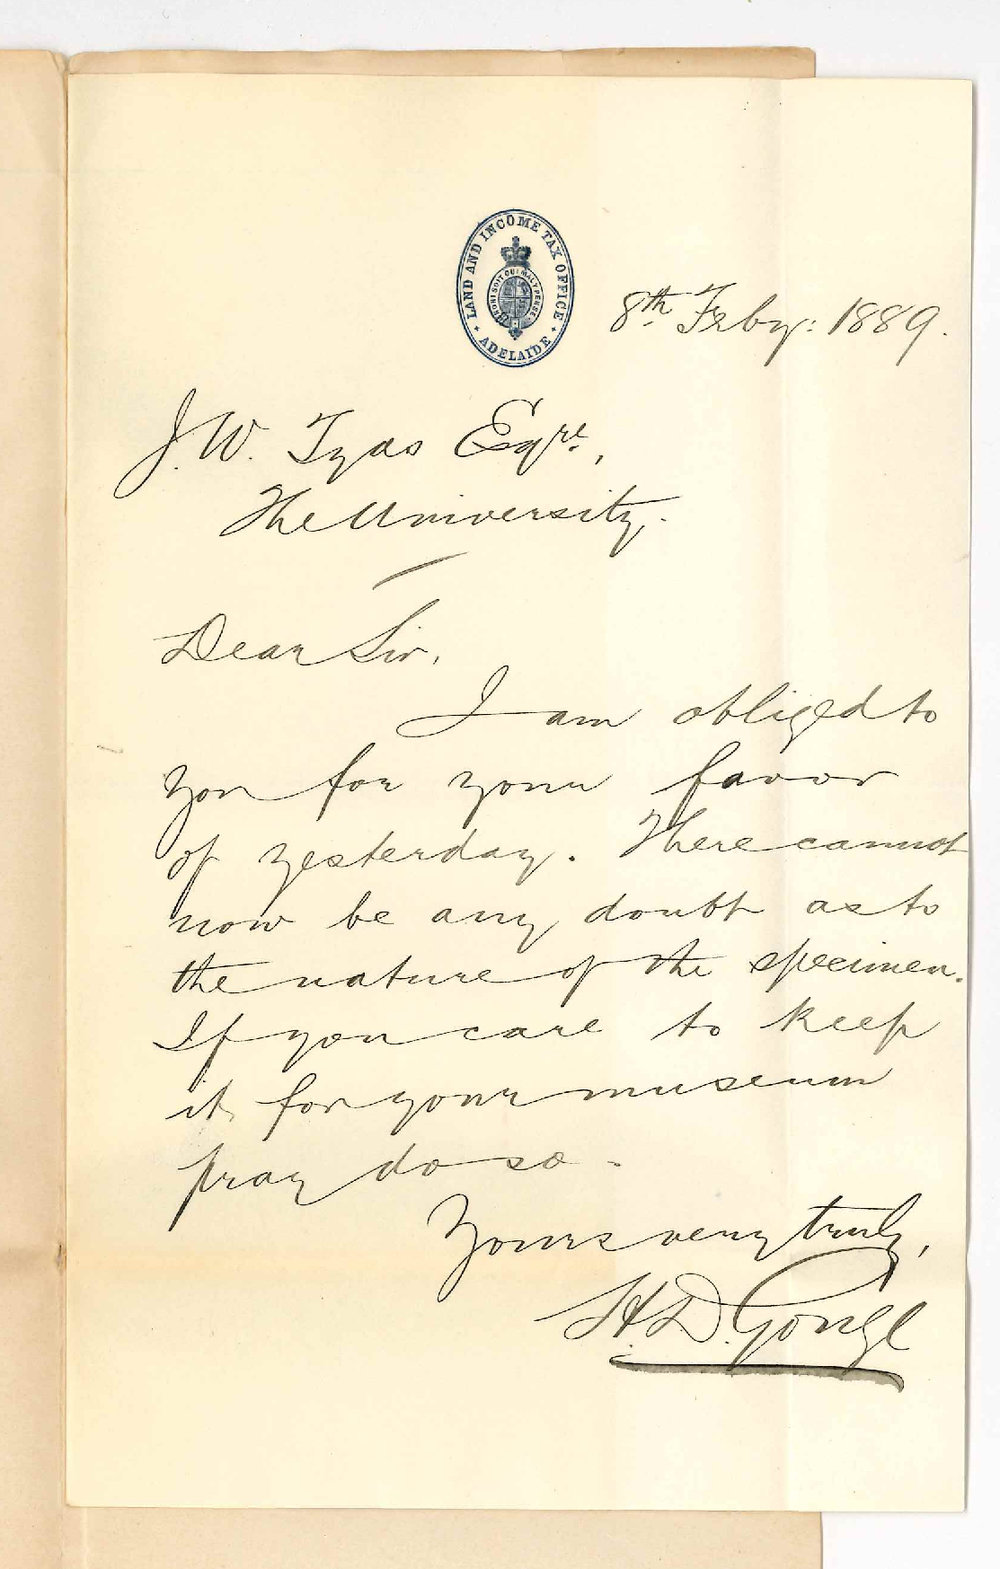 LAND AND INCOME TAX OFFICE
ADELAIDE
HONI SOIT QUI MAL Y PENSE
8th Feby: 1889.
J. W. Tyas Esqre.,
The University.
Dear Sir,
I am obliged to
you for your favor
of yesterday. There cannot
now be any doubt as to
the nature of the specimen.
If you care to keep
it for your museum
pray do so.
Yours very truly,
H. D. Gouge